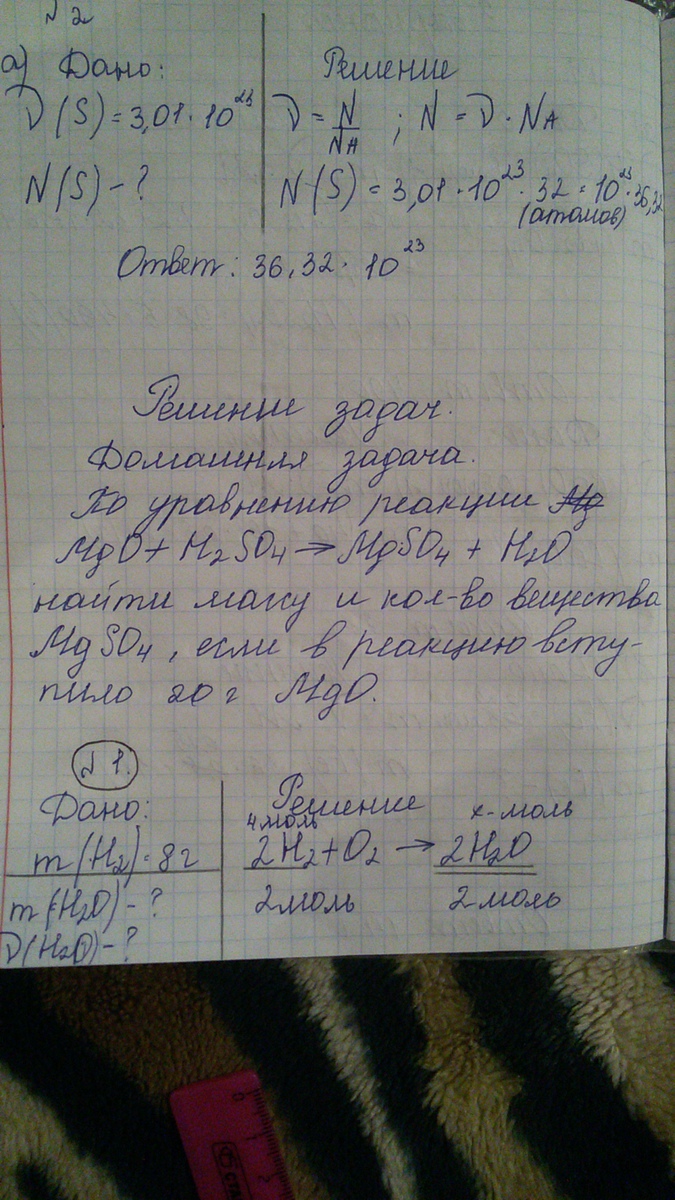 № 2
а) Дано: Решение
ν(S) = 3,01 · 10²³ ν = N/NA ; N = ν · NA
N(S) - ? N(S) = 3,01 · 10²³ · 32 = 10²³ · 36,32
(атомов)
Ответ: 36,32 · 10²³
Решение задач.
Домашняя задача.
По уравнению реакции Mg
MgO + H₂SO₄ → MgSO₄ + H₂O
найти массу и кол-во вещества
MgSO₄, если в реакцию всту-
пило 20 г MgO.
№ 1.
Дано: Решение
4 моль x-моль
m(H₂) = 8 г 2H₂ + O₂ → 2H₂O
m(H₂O) - ? 2 моль 2 моль
ν(H₂O) - ?
0
1
2